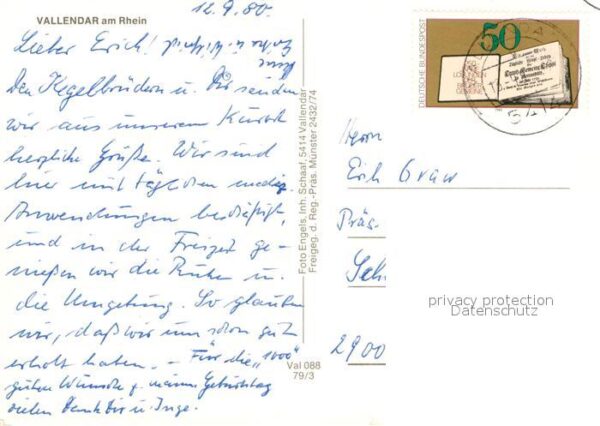 VALLENDAR am Rhein
12.9.80.
Lieber Erich!
Den Kegelbrüdern u. Dir senden
wir aus unserem Kurort
herzliche Grüße. Wir sind
hier mit täglichen mediz.
Anwendungen beschäftigt,
und in der Freizeit ge-
nießen wir die Ruhe u.
die Umgebung. So glauben
wir, daß wir uns schon gut
erholt haben. – Für die „1000"
guten Wünsche z. meinem Geburtstag
vielen Dank Dir u. Inge.
Foto Engels, Inh. Schaaf, 5414 Vallendar
Freigeg. d. Reg.-Präs. Münster 2432/74
Val 088
79/3
DEUTSCHE BUNDESPOST
50
5414
Herrn
Erich Graw
Präs.
Sch
2900
privacy protection
Datenschutz